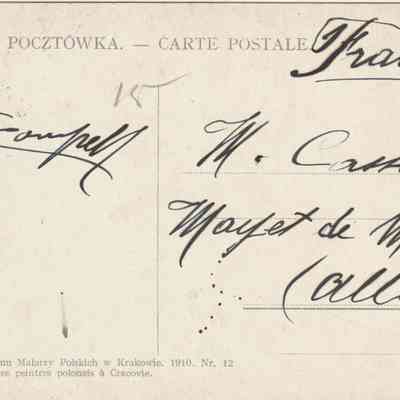 POCZTÓWKA. — CARTE POSTALE
Fra
15
M. Cass
Mayet de M
(All
nu Malarzy Polskich w Krakowie. 1910. Nr. 12
es peintres polonais à Cracovie.